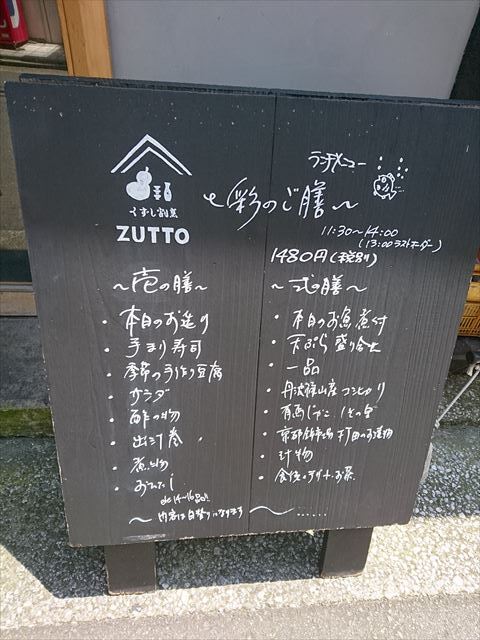 くずし割烹
ZUTTO
ランチメニュー
〜彩のご膳〜
11:30〜14:00
(13:00ラストオーダー)
1480円(税別)
〜壱の膳〜
・本日のお造り
・手まり寿司
・季節の手作り豆腐
・サラダ
・酢の物
・出汁巻
・煮物
・おひたし
〜内容は日替りになります〜……
〜弍の膳〜
・本日のお魚煮付
・天ぷら盛り合せ
・一品
・丹波篠山産コシヒカリ
・有馬じゃこ
・京都錦市場 打田のお漬物
・汁物
・食後のデザート・お茶